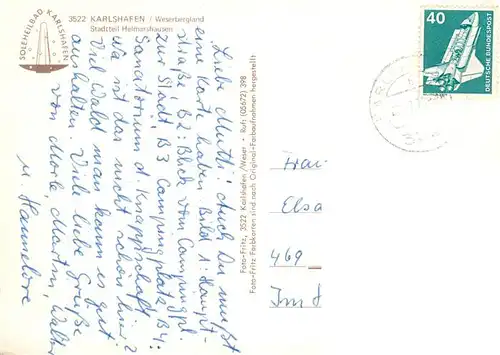 SOLEHEILBAD KARLSHAFEN
3522 KARLSHAFEN / Weserbergland
Stadtteil Helmarshausen
Liebe Mutti! Auch Du mußt
eine Karte haben Bild 1: Haupt-
straße B2: Blick vom Campingpl.
zur Stadt, B3 Campingplatz B4:
Sanatorium d. Knappschaft
wo ist das nicht schön hier?
Viel Wald man kann es gut
aushalten. Viele liebe Grüße
von Merle, Martin, Walter
u. Hannelore
Foto-Fritz, 3522 Karlshafen/Weser - Ruf: (05672) 398
Foto-Fritz Farbkarten sind nach Original-Farbaufnahmen hergestellt
40
DEUTSCHE BUNDESPOST
Frau
Elsa
469